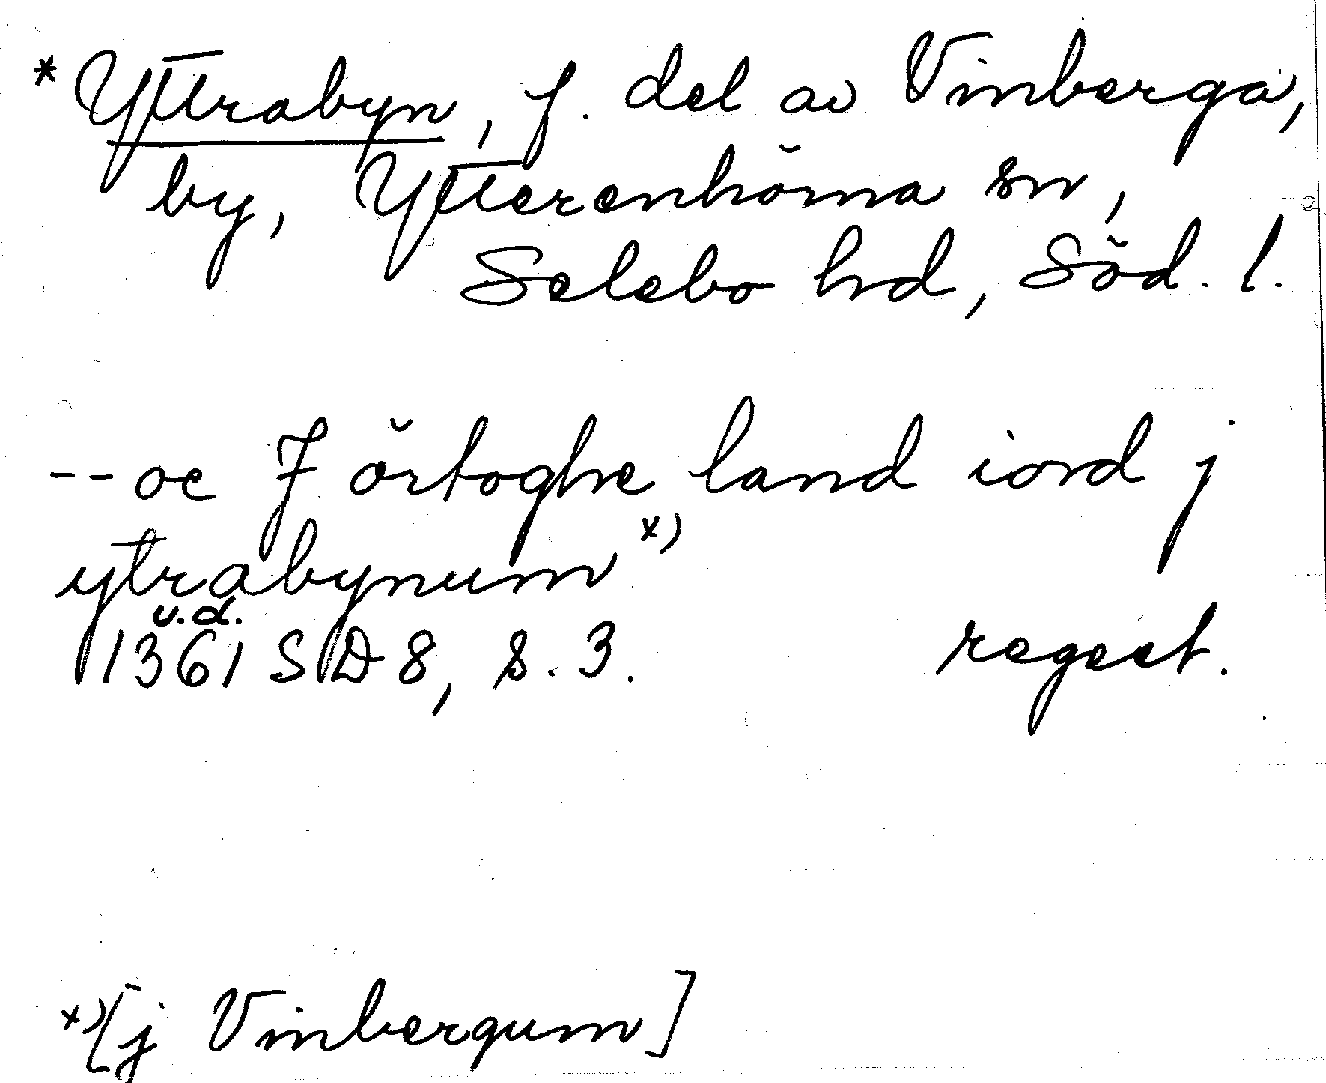 *Yttrabyn, f. del av Vinberga,
by, Ytterenhörna sn,
Selebo hd, Söd. l.
--oc J örtoghe land iord j
ytrabynum x)
u.d.
1361 SD 8, s. 3. regest.
x) [j Vinbergum]